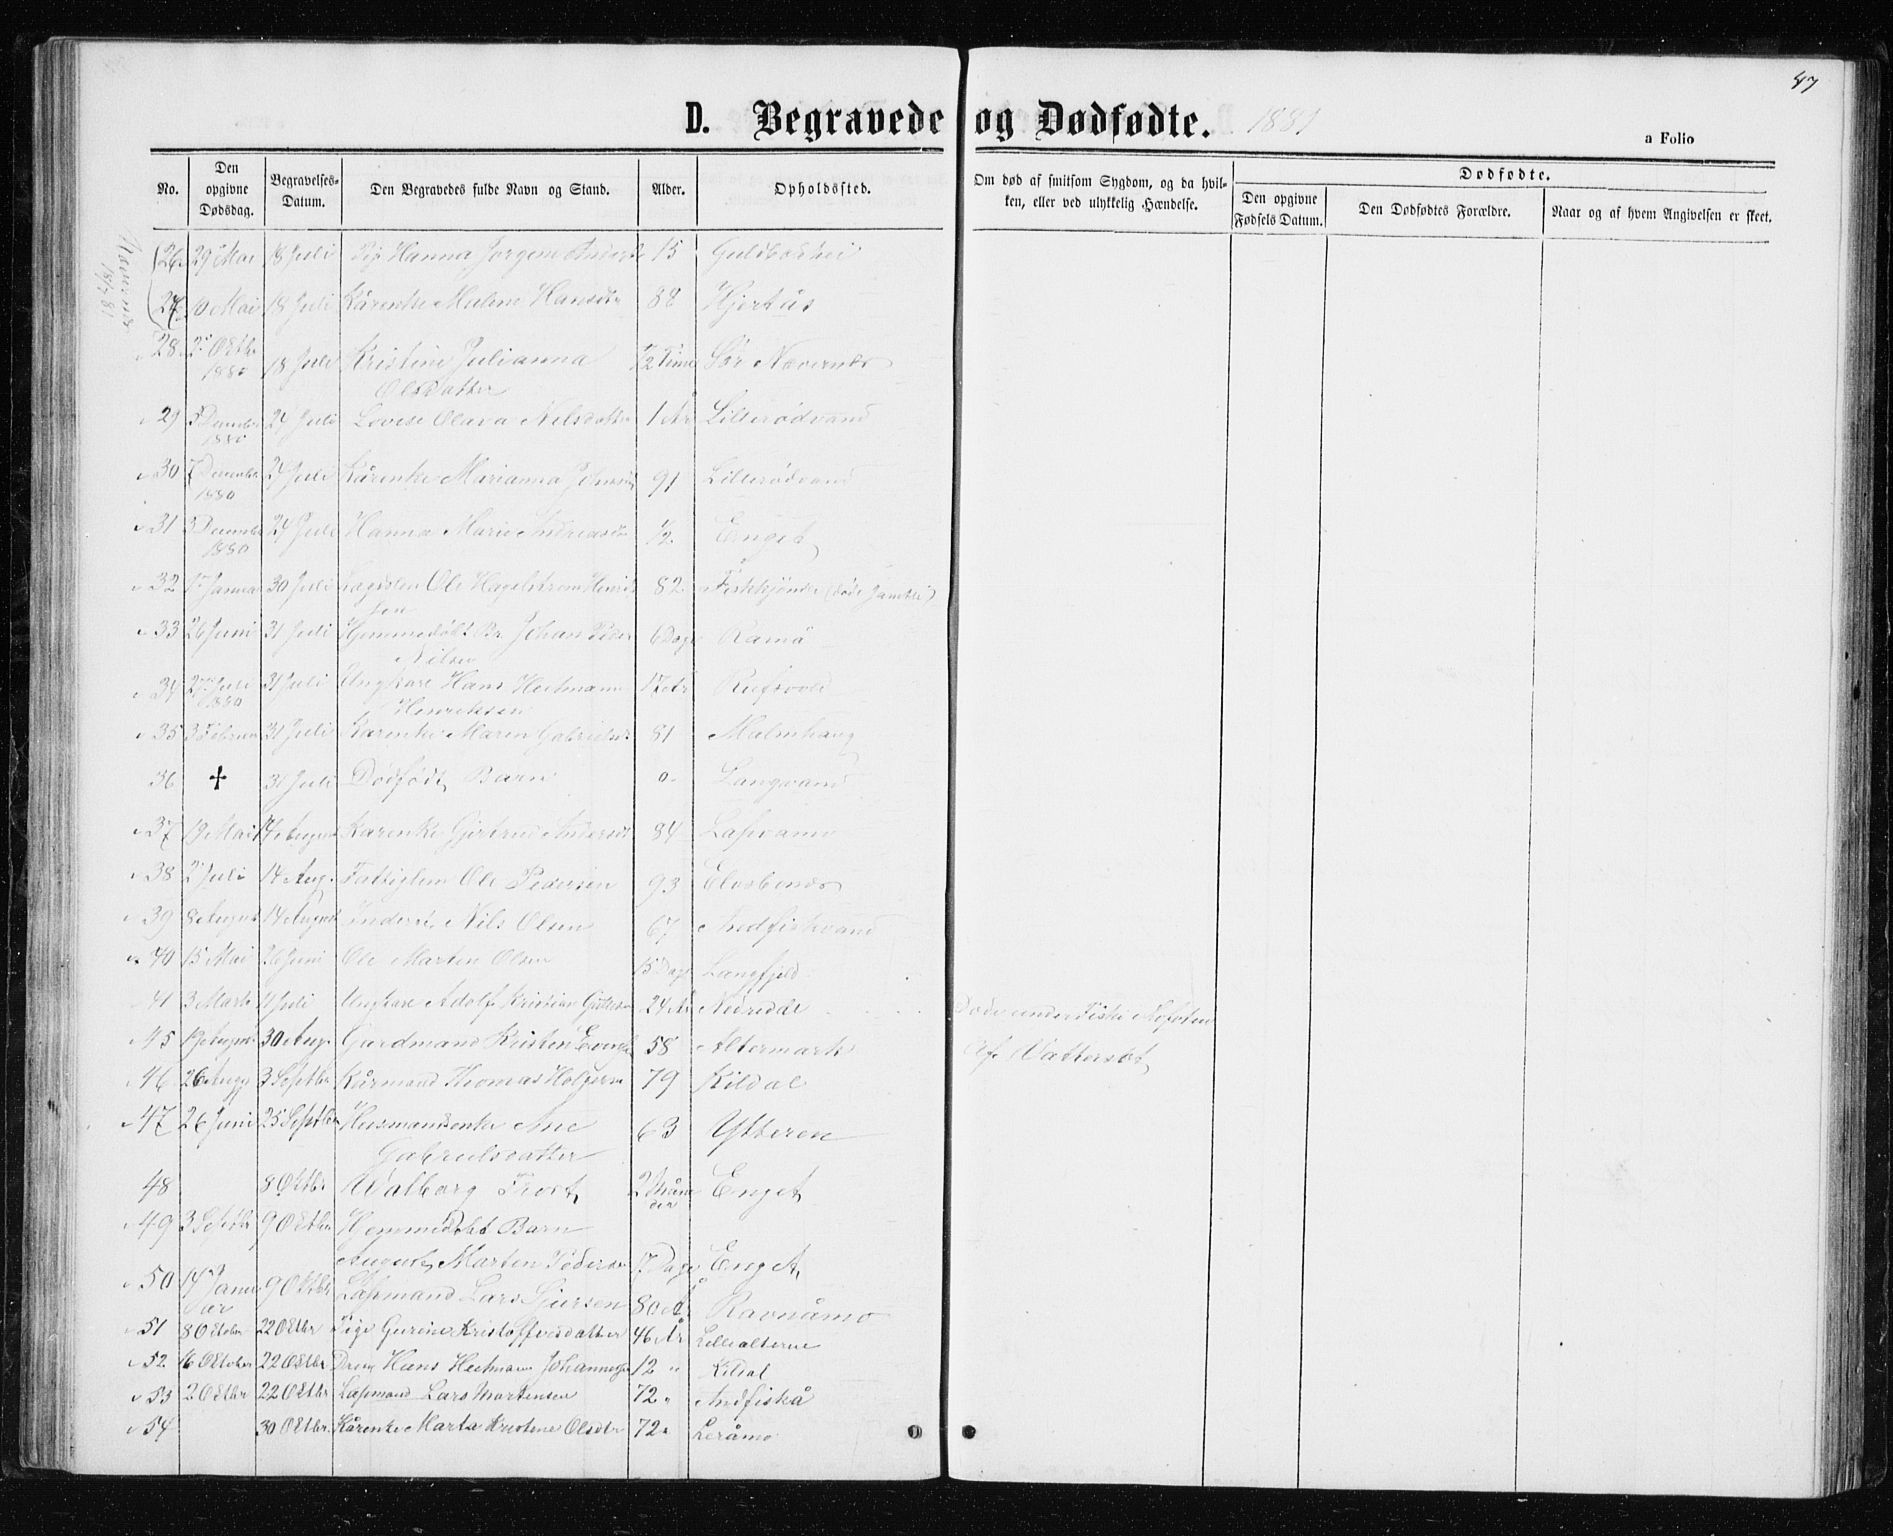 47
D. Begravede og Dødfødte. 1881
a Folio
No.
Den opgivne Dødsdag.
Begravelses-Datum.
Den Begravedes fulde Navn og Stand.
Alder.
Opholdssted.
Om død af smitsom Sygdom, og da hvil-
ken, eller ved ulykkelig Hændelse.
Dødfødte.
Den opgivne Fødsels Datum.
Den Dødfødtes Forældre.
Naar og af hvem Angivelsen er skeet.
26 29 Mai 18 Juli Hanna 15
27 10 Mai 18 Juli Kårenke Malene Hansdtr 88 Hjertås
28 2 Oktbr 1880 18 Juli Kristine Julianna 1/2 Time Sør Nævernæs
Olsdatter
29 5 December 1880 24 Juli Lovise Olava Nilsdatter 1 År Lillerødvand
30 7 December 1880 24 Juli Kårenke Marianna 91 Lillerødvand
31 December 1880 24 Juli Hanna Marie Andreasdtr 1/2 Enget
32 Januar 30 Juli Ole Hagelstrøm Henrik 82
sen
33 26 Juni 31 Juli Hjemmedøbt Br. Johan Peder 6 Dage Ramå
Nilsen
34 27 Juli 1880 31 Juli Ungkarl Hans Heitmann 17 År
Henriksen
35 3 Februar 31 Juli Karenke Maren Gabrielsdt 81 Malmhaug
36 ✝ 31 Juli Dødfødt Barn 0 Langvand
37 19 Mai 14 August Karenke Gjertrud Andersdt 84 Lapvamo
38 2 Juli 14 Aug. Fattiglem Ole Pedersen 93
39 8 August 14 August Inderst Nils Olsen 67 Andfiskvand
40 15 Mai 26 Juni Ole Martin Olsen 15 Dage Langfjeld
41 3 Marts Juli Ungkarl Adolf Kristian 24 År Nedredal Døde under Fiske Lofoten
45 19 August 30 Aug. Gardmand Kristen 58 Altermark Af Vattersot
46 26 Aug 3 Septbr Kårmand Thomas Holgersen 79 Kildal
47 26 Juni 25 Septbr Husmandsenke Ane 63 Ytteren
Gabrielsdatter
48 8 Oktbr Walborg Frost 2 Måneder Enget
49 3 Septbr 9 Oktbr Hjemmedøbt Barn
August Martin Pedersen 17 Dage Enget
50 14 Januar 9 Oktbr Lapmand Lars Sjursen 80 År Ravnåmo
51 8 Oktober 22 Oktbr Pige Gurine Kristoffersdatter 46 År Lillealteren
52 16 Oktober 22 Oktbr Dreng Hans Heitmann Johannesen 12 " Kildal
53 2 Oktbr 22 Oktbr Lapmand Lars Mortensen 72 " Andfiskå
54 30 Oktbr Kårenke Marta Kristene Olsdtr 72 " Leråmo